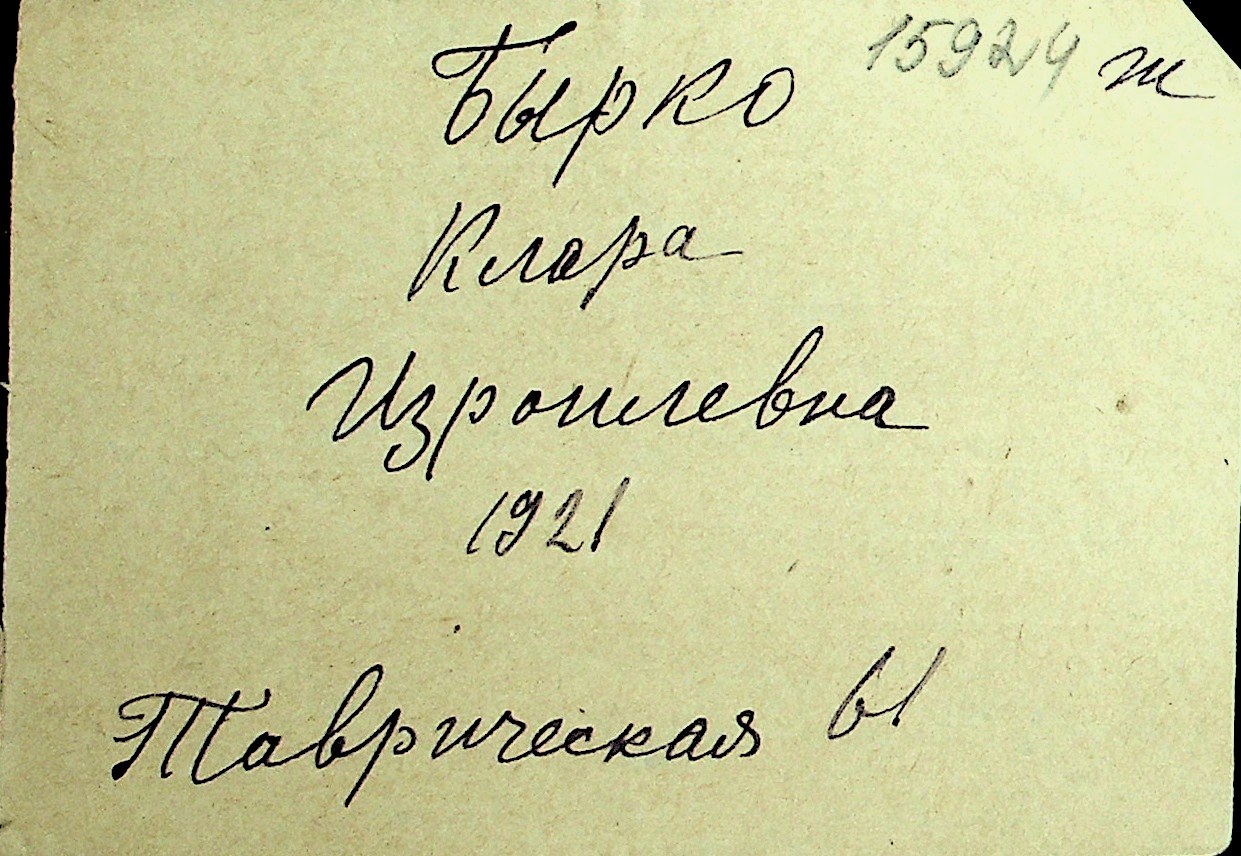 Бырко 15924 ж
Клара
Изроилевна
1921
Таврическая 61